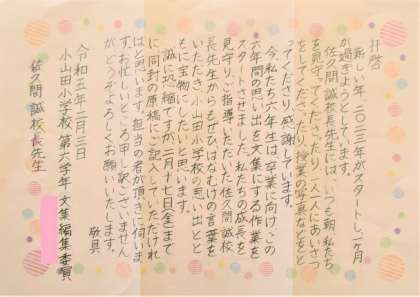 拝啓
新しい年、二〇二三年がスタートし、一ヶ月
が過ぎようとしています。
佐久間誠校長先生には、いつも朝、私たち
を見守ってくださったり、一人一人にあいさつ
をしてくださったり、授業の写真などをと
ってくださり、感謝しています。
今、私たち六年生は、卒業に向けてこの
六年間の思い出を文集にする作業を
スタートさせました。私たちの成長を
見守り、ご指導いただいた佐久間誠校
長先生からもぜひはなむけの言葉を
いただき、小山田小学校の思い出とと
もに宝物にしたいと思います。
誠に恐縮ですが、二月十七日(金)まで
に同封の原稿にご記入していただけれ
ばと思います。担当の者が頂きに伺いま
す。お忙しいところ申し訳ございません
がどうぞよろしくお願いいたします。
敬具
令和五年二月三日
小山田小学校第六学年 文集編集委員
佐久間 誠校長先生